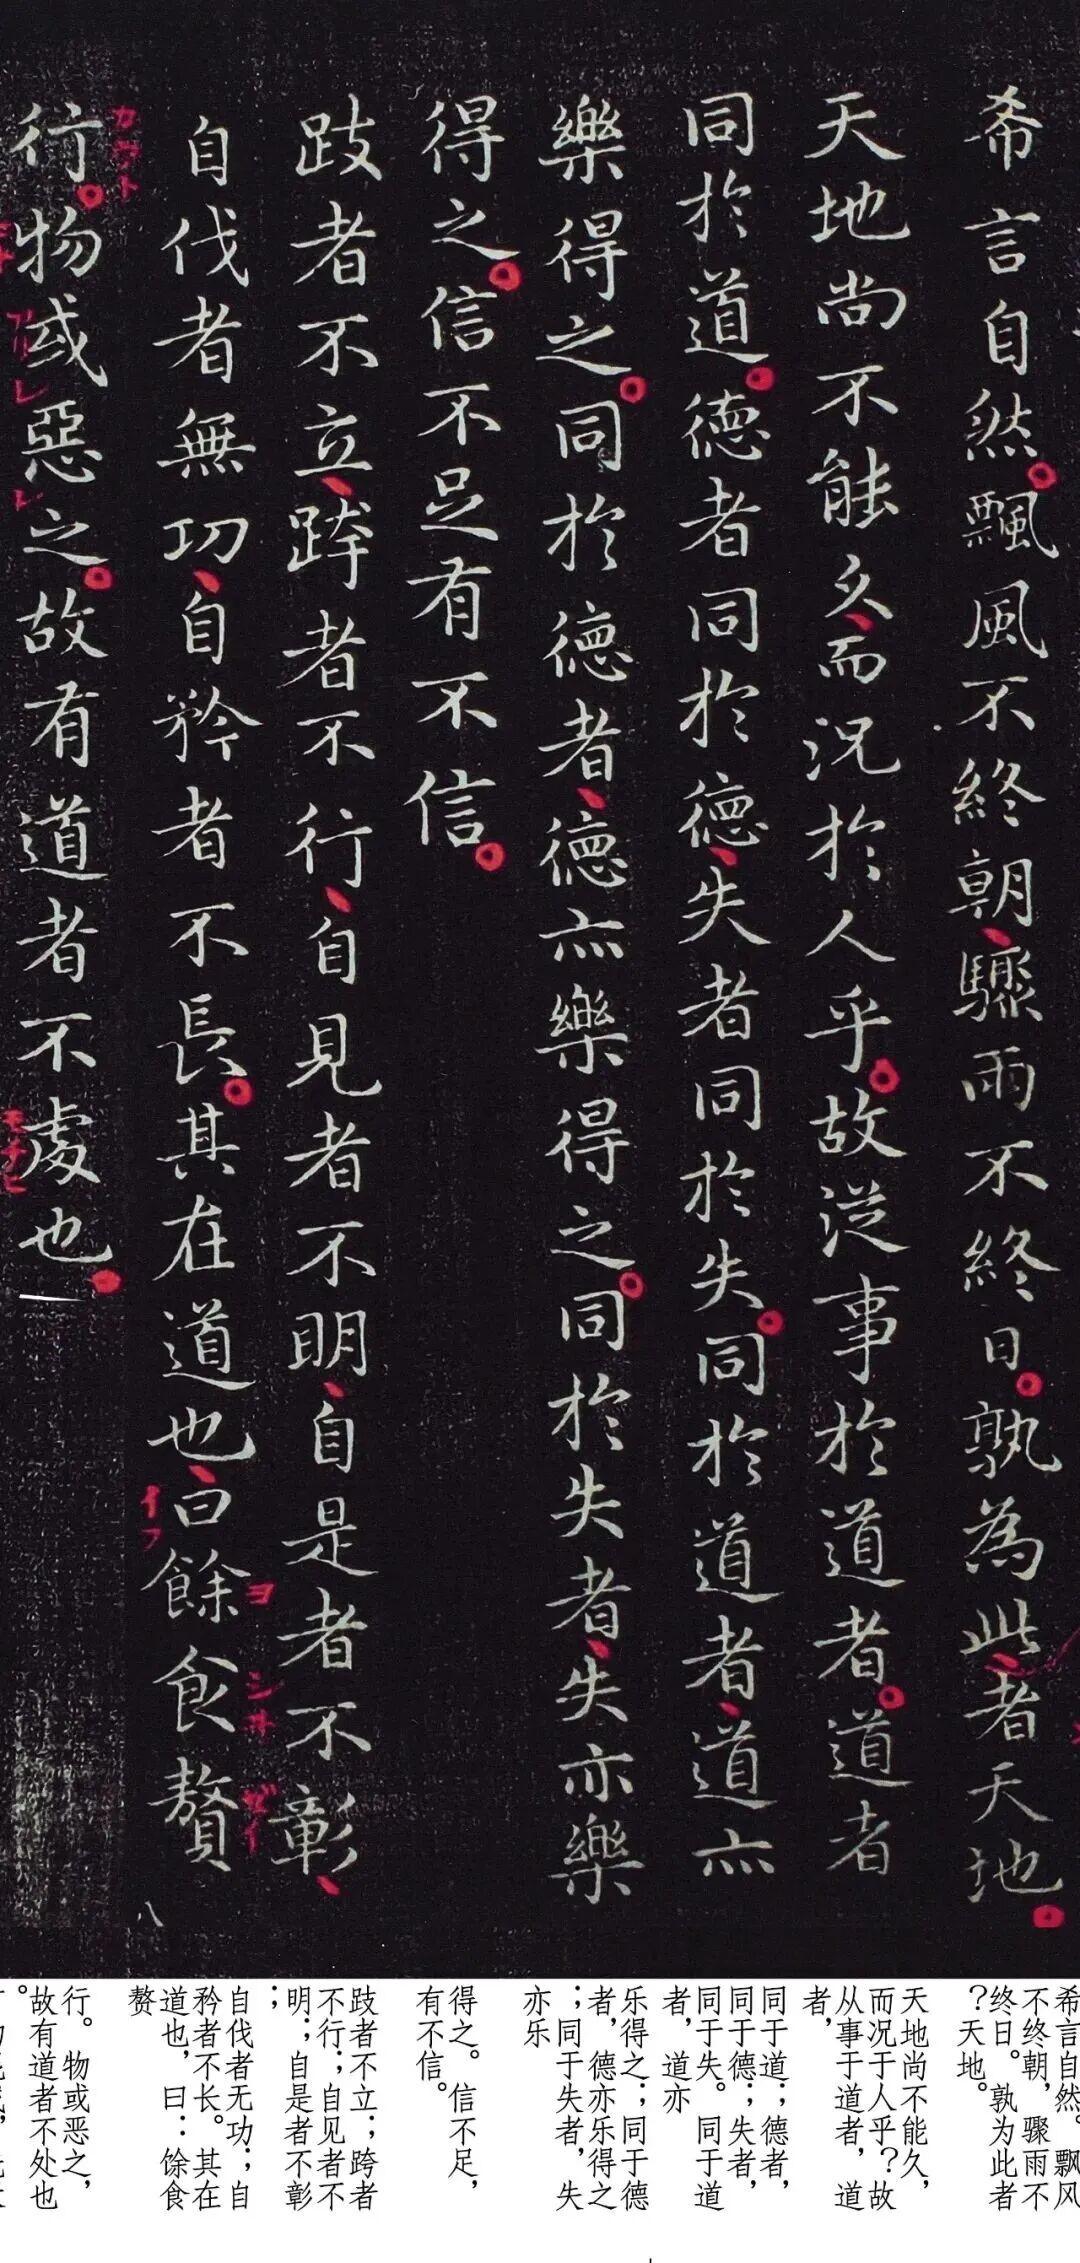 希言自然飄風不終朝驟雨不終日孰為此者天地
天地尚不能久而況於人乎故従事於道者道者
同於道德者同於德失者同於失同於道者道亦
樂得之同於德者德亦樂得之同於失者失亦樂
得之信不足有不信
跂者不立跨者不行自見者不明自是者不彰
自伐者無功自矜者不長其在道也曰餘食贅
行物或惡之故有道者不處也
カウト
フハレ
レ
イフ
ヨ
シヰ
ゼイ
八
希言自然。飘风
不终朝，骤雨不
终日。孰为此者
？天地。
天地尚不能久，
而况于人乎？故
从事于道者，道
者，
同于道；德者，
同于德；失者，
同于失。同于道
者，道亦
乐得之；同于德
者，德亦乐得之
；同于失者，失
亦乐
得之。信不足，
有不信。
跂者不立；跨者
不行；自见者不
明；自是者不彰
；
自伐者无功；自
矜者不长。其在
道也，曰：馀食
赘
行。物或恶之，
故有道者不处也
。